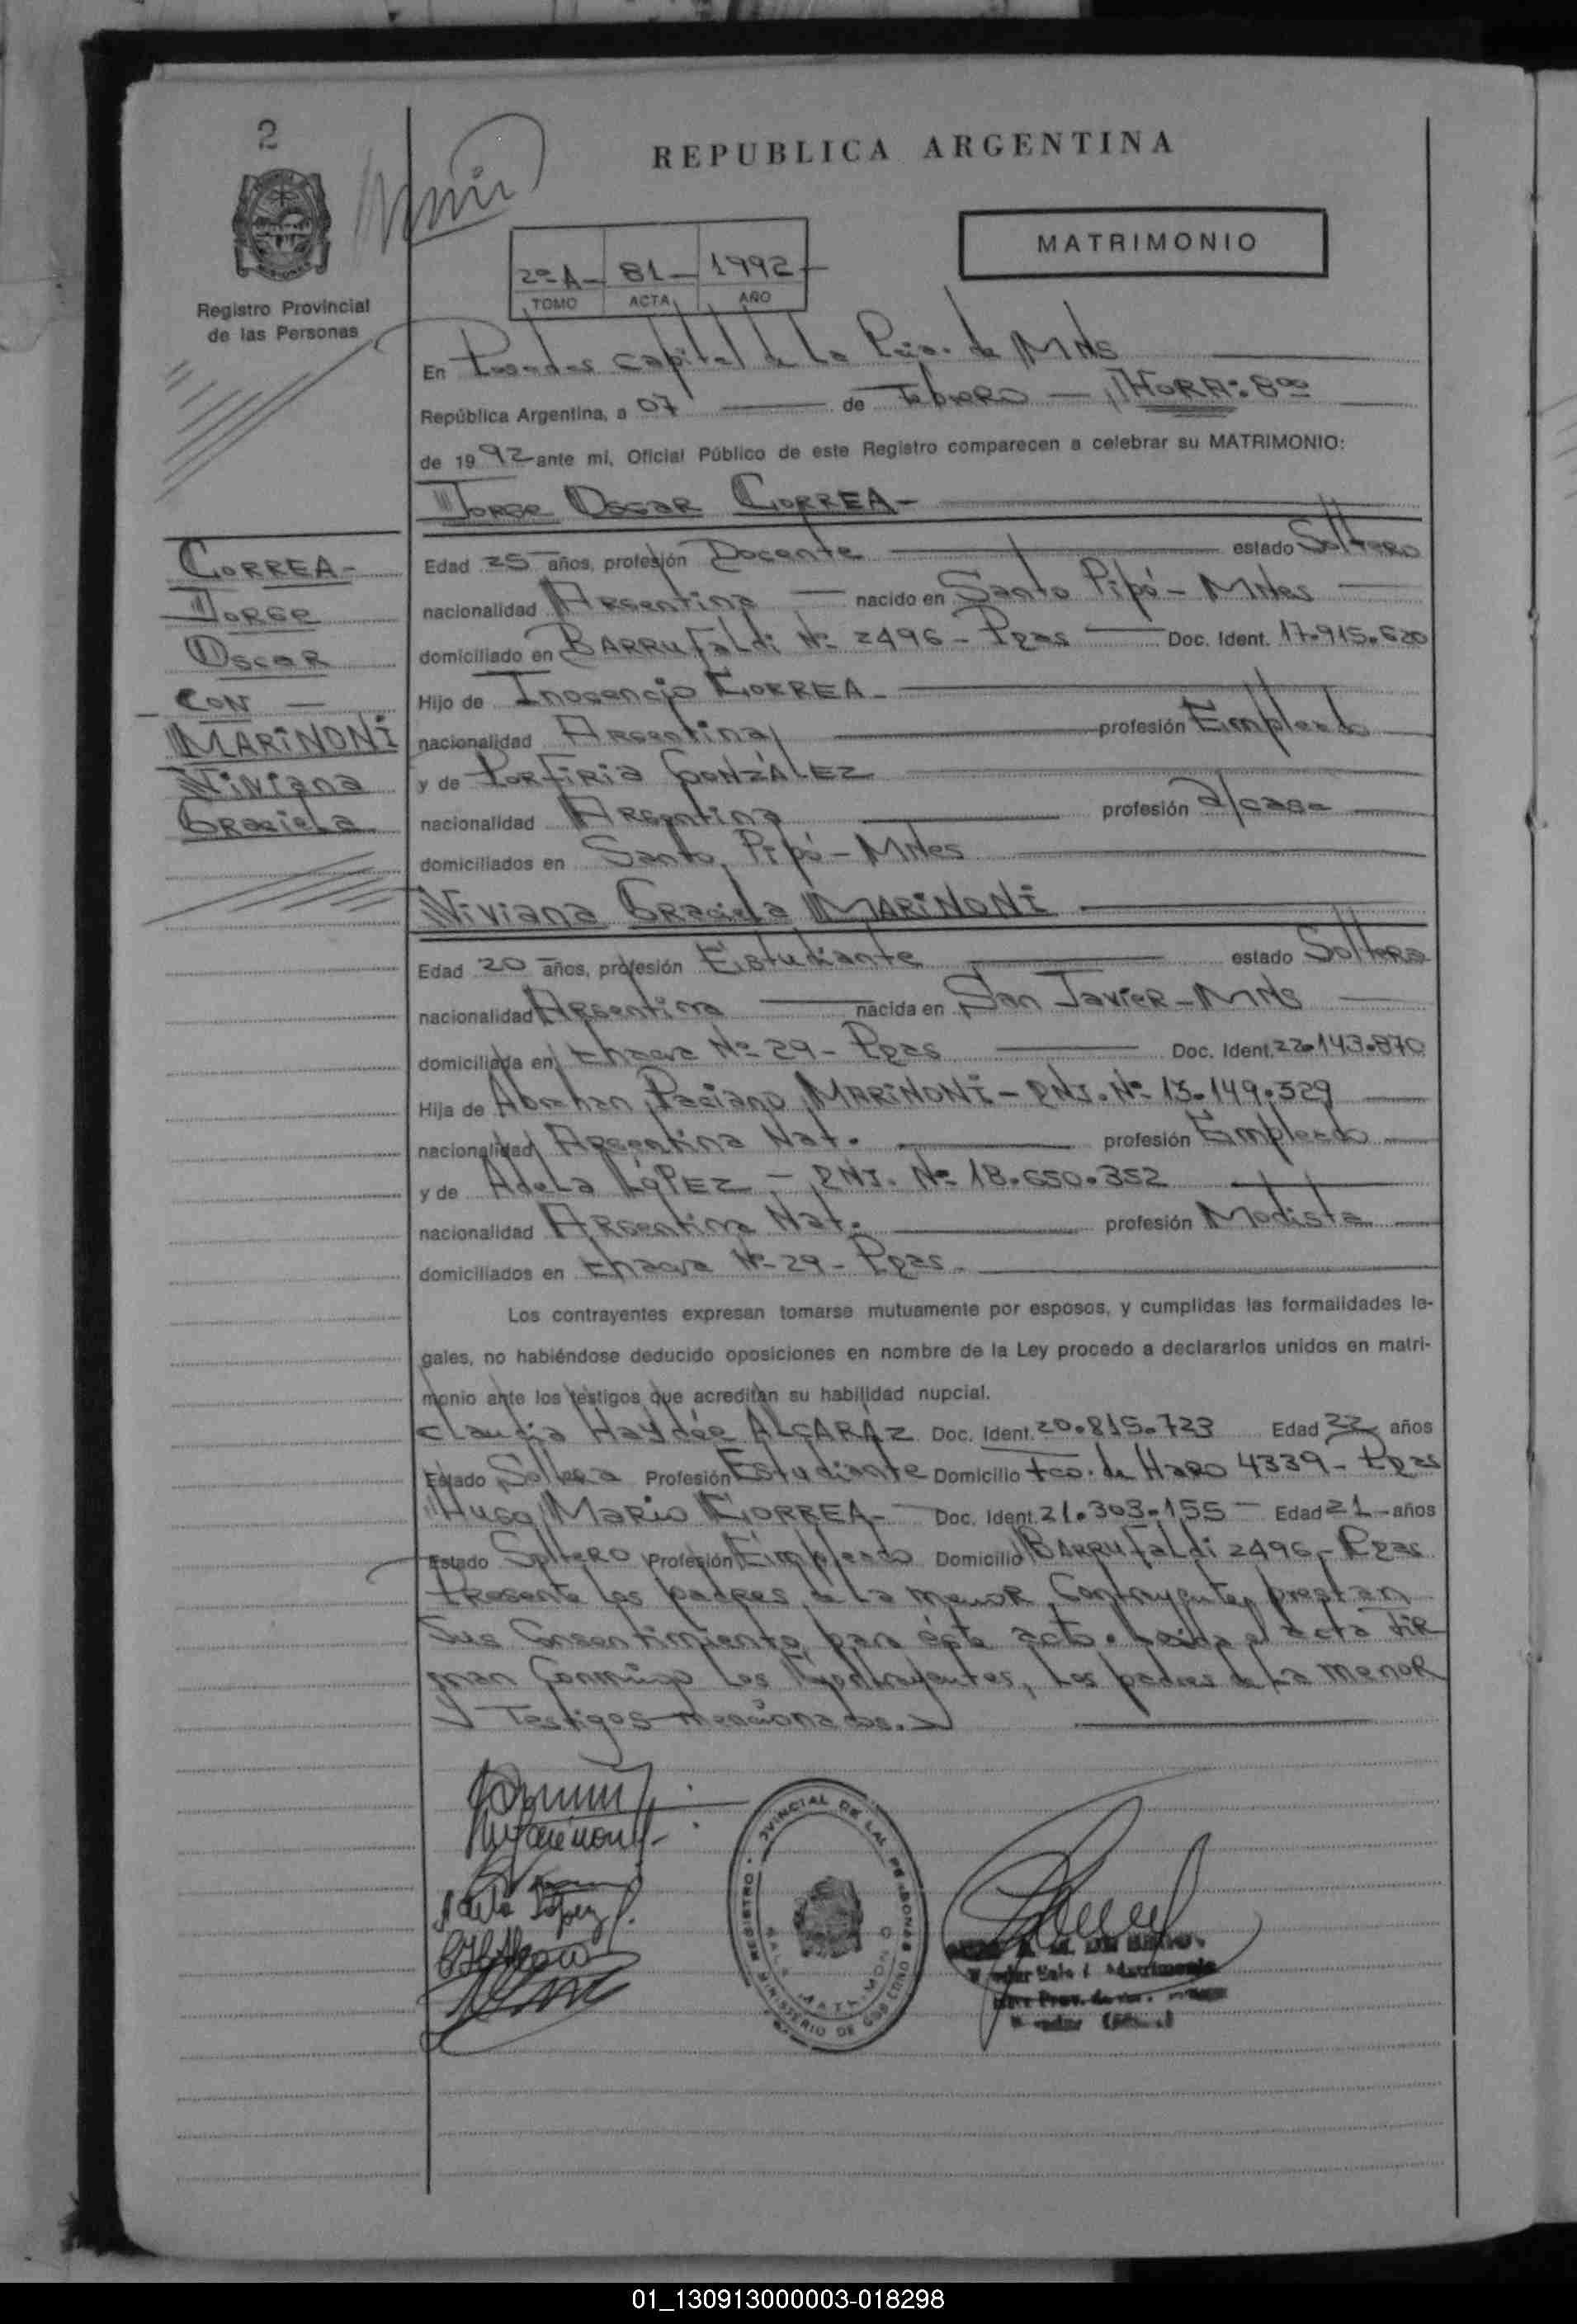 2
REPUBLICA ARGENTINA
MATRIMONIO
2º A - 81 - 1992 -
TOMO ACTA AÑO
Registro Provincial
de las Personas
En Posadas capital de La Pcia. de MNes
República Argentina, a 07 de Febrero - HORA: 8°°
de 1992 ante mi, Oficial Público de este Registro comparecen a celebrar su MATRIMONIO:
Jorge Oscar CORREA -
CORREA -
Jorge
Oscar
CON -
MARINONI
Viviana
Graciela
Edad 25 años, profesión Docente estado Soltero
nacionalidad Argentina nacido en Santo Pipó - MNes
domiciliado en BARRUFALDI Nº 2496 - Pdas Doc. Ident. 17.915.620
Hijo de Inocencio CORREA -
nacionalidad Argentina profesión Empleado
y de Porfiria GONZÁLEZ
nacionalidad Argentina profesión q/casa
domiciliados en Santo Pipó - MNes
Viviana Graciela MARINONI
Edad 20 años, profesión Estudiante estado Soltera
nacionalidad Argentina nacida en San Javier - MNes
domiciliada en Chacra Nº 29 - Pdas Doc. Ident. 22.143.870
Hija de Abrahan Paciano MARINONI - DNI. Nº 13.149.329
nacionalidad Argentina Nat. profesión Empleado
y de Adela LÓPEZ - DNI. Nº 18.650.352
nacionalidad Argentina Nat. profesión Modista
domiciliados en Chacra Nº 29 - Pdas -
Los contrayentes expresan tomarse mutuamente por esposos, y cumplidas las formalidades le-
gales, no habiéndose deducido oposiciones en nombre de la Ley procedo a declararlos unidos en matri-
monio ante los testigos que acreditan su habilidad nupcial.
Claudia Haydée ALCARAZ Doc. Ident. 20.815.723 Edad 22 años
Estado Soltera Profesión Estudiante Domicilio Fco. de Haro 4339 - Pdas
Hugo Mario CORREA - Doc. Ident. 21.303.155 - Edad 21 - años
Estado Soltero Profesión Empleado Domicilio BARRUFALDI 2496 - Pdas
Presente los padres de la menor Contrayente, prestan
Sus Consentimiento para éste acto. Leída el acta Fir
man Conmigo los Contrayentes, los padres de la menor
y Testigos mencionados.
Adela López
REGISTRO PROVINCIAL DE LAS PERSONAS
MINISTERIO DE GOBIERNO
SALA MATRIMONIO
01_130913000003-018298